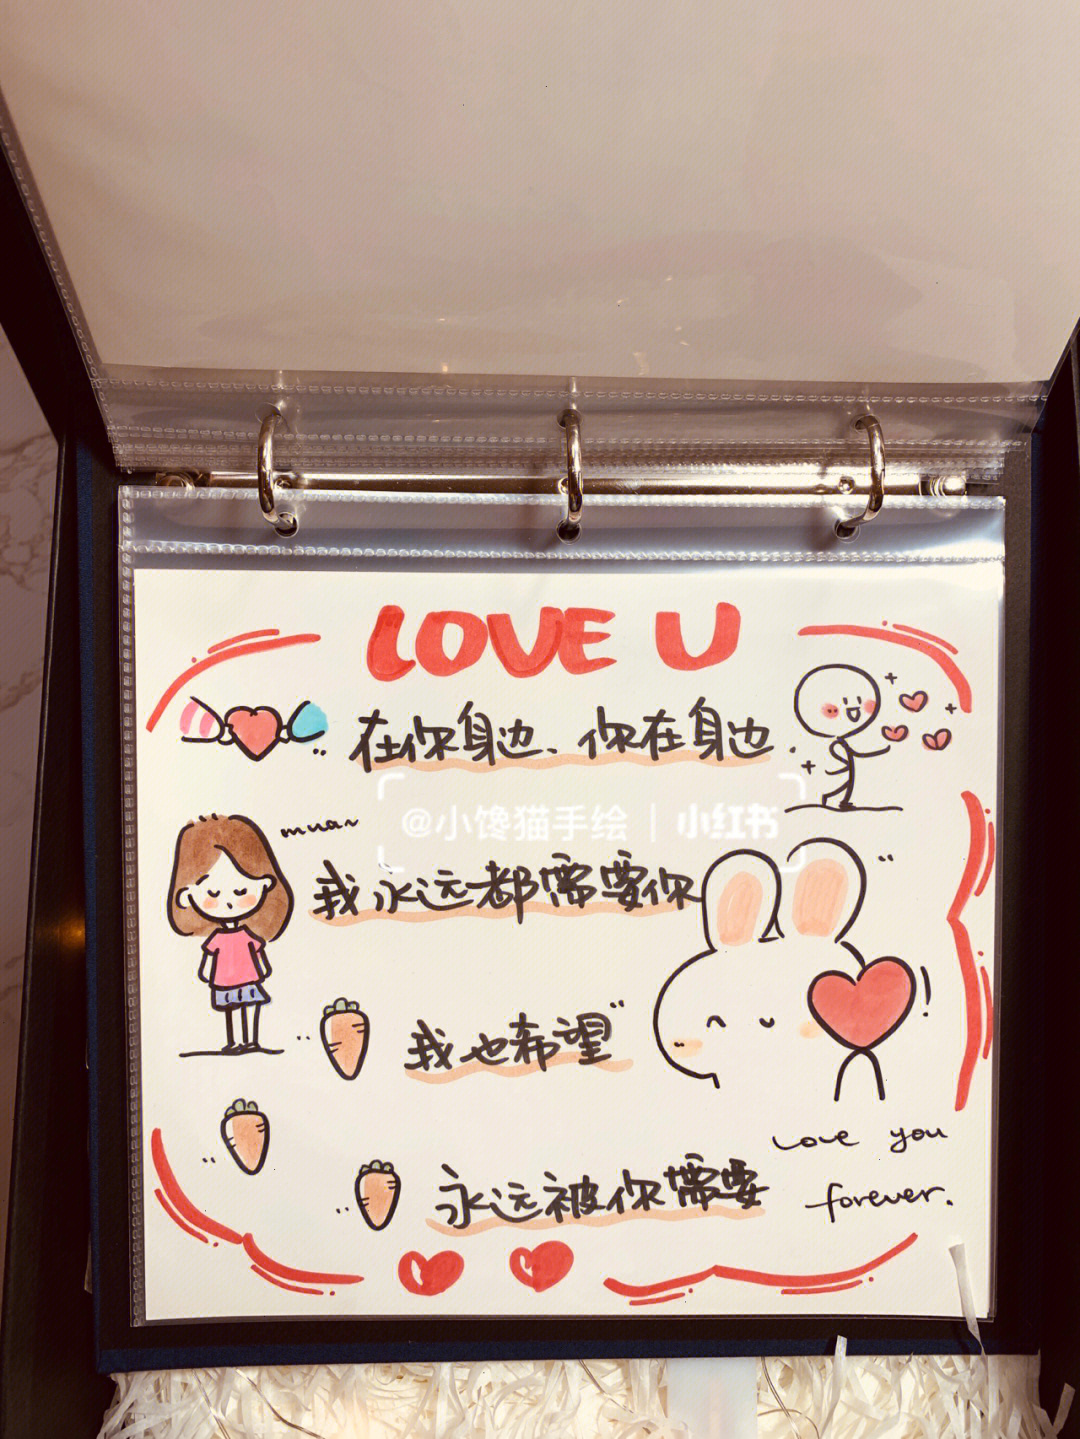 LOVE U
在你身边、你在身边.
@小馋猫手绘 | 小红书
muan
我永远都需要你
我也希望
永远被你需要
love you
forever.